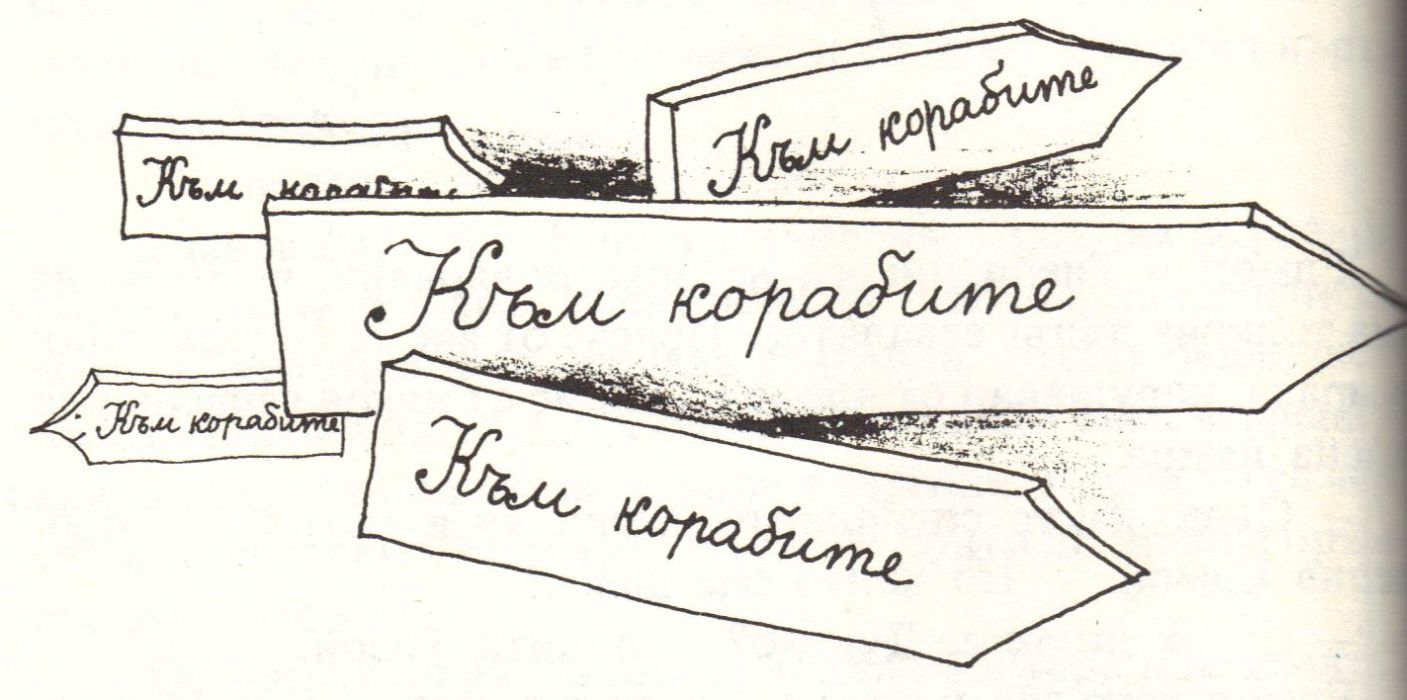 Към корабите
Към корабите
Към корабите
Към корабите
Към корабите